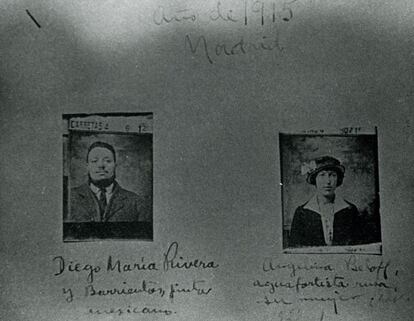 Año de 1915
Madrid
CARRETAS 4
Diego María Rivera
y Barrientos, pintor
mexicano.
Angelina Beloff,
aguafortista rusa,
su mujer